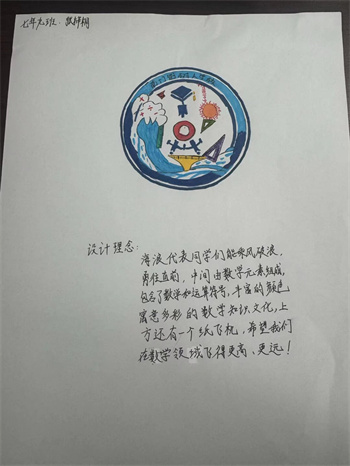 七年九班
设计理念:
海浪代表同学们能乘风破浪,
勇往直前,中间由数学元素组成,
包含了数字和运算符号,丰富的颜色
寓意多彩的数学知识文化,上
方还有一个纸飞机,希望我们
在数学领域飞得更高、更远!